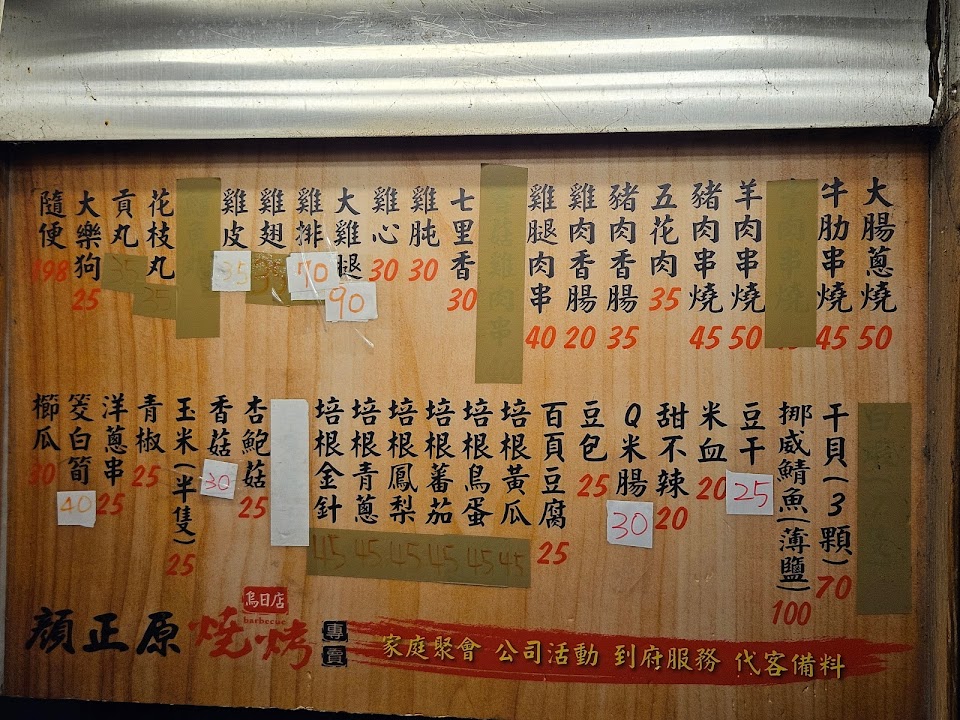 大腸蔥燒 50
牛肋串燒 45
羊肉串燒 50
豬肉串燒 45
五花肉 35
豬肉香腸 35
雞肉香腸 20
雞腿肉串 40
七里香 30
雞肫 30
雞心 30
大雞腿 90
雞排 70
雞翅
雞皮 35
花枝丸 25
貢丸 35
大樂狗 25
隨便 198
干貝(3顆) 70
挪威鯖魚(薄鹽) 100
豆干 25
米血 20
甜不辣 20
Q米腸 30
豆包 25
百頁豆腐 25
培根黃瓜 45
培根鳥蛋 45
培根蕃茄 45
培根鳳梨 45
培根青蔥 45
培根金針 45
杏鮑菇 25
香菇 30
玉米(半隻) 25
青椒 25
洋蔥串 25
筊白筍 40
櫛瓜 30
烏日店
barbecue
顏正原燒烤專賣
家庭聚會 公司活動 到府服務 代客備料